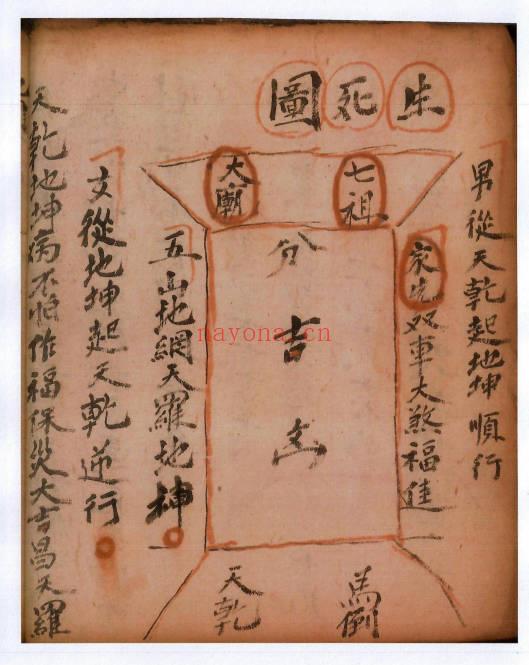 生死圖
男從天乾起地坤順行
七祖
家先双車大煞福徤
大廟
分吉凶
五山地網天羅地神
馬倒
天乾
女從地坤起天乾逆行
天乾地坤病不怕作福保災大吉昌天羅
nayona.cn